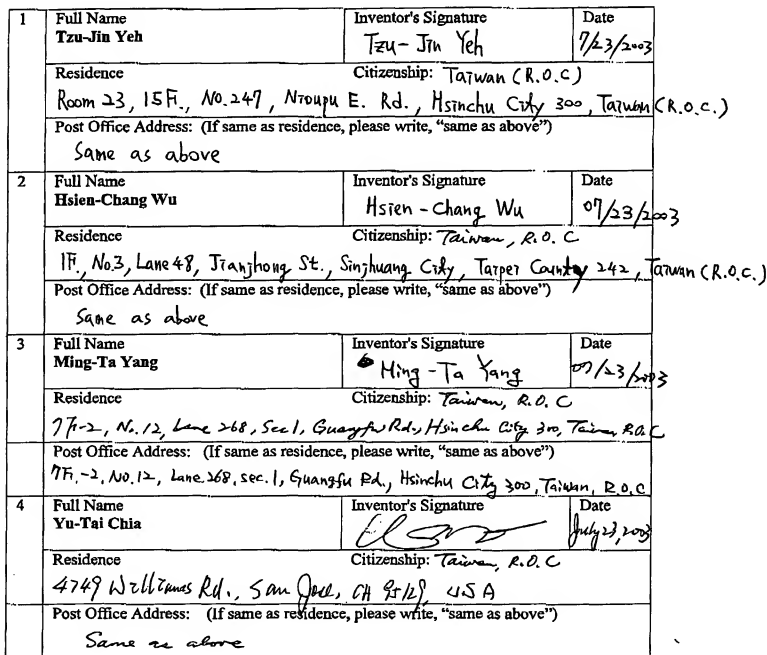 1 Full Name Inventor's Signature Date
Tzu-Jin Yeh Tzu-Jin Yeh 7/23/2003
Residence Citizenship: Taiwan (R.O.C)
Room 23, 15F., No.247, Nioupu E. Rd., Hsinchu City 300, Taiwan (R.O.C.)
Post Office Address: (If same as residence, please write, "same as above")
Same as above
2 Full Name Inventor's Signature Date
Hsien-Chang Wu Hsien-Chang Wu 07/23/2003
Residence Citizenship: Taiwan, R.O.C
1F., No.3, Lane 48, Jianjhong St., Sinjhuang City, Taipei County 242, Taiwan (R.O.C.)
Post Office Address: (If same as residence, please write, "same as above")
Same as above
3 Full Name Inventor's Signature Date
Ming-Ta Yang Ming-Ta Yang 07/23/2003
Residence Citizenship: Taiwan, R.O.C
7F.-2, No.12, Lane 268, Sec 1, Guangfu Rd., Hsinchu City 300, Taiwan R.O.C
Post Office Address: (If same as residence, please write, "same as above")
7F.-2, NO.12, Lane 268, sec.1, Guangfu Rd., Hsinchu City 300, Taiwan, R.O.C
4 Full Name Inventor's Signature Date
Yu-Tai Chia July 23, 2003
Residence Citizenship: Taiwan, R.O.C
4749 Williams Rd., San Jose, CA 95129, USA
Post Office Address: (If same as residence, please write, "same as above")
Same as above